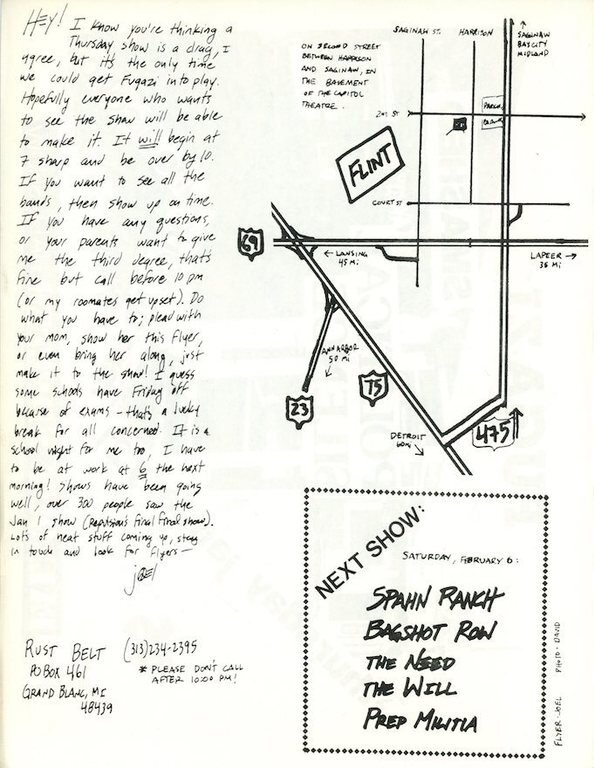 HEY! I know you're thinking a
Thursday show is a drag, I
agree, but it's the only time
we could get Fugazi into play.
Hopefully everyone who wants
to see the show will be able
to make it. It will begin at
7 sharp and be over by 10.
If you want to see all the
bands, then show up on time.
If you have any questions,
or your parents want to give
me the third degree, that's
fine but call before 10 pm
(or my roomates get upset). Do
what you have to; plead with
your mom, show her this flyer,
or even bring her along, just
make it to the show! I guess
some schools have Friday off
because of exams - that's a lucky
break for all concerned. It is a
school night for me too, I have
to be at work at 6 the next
morning! Shows have been going
well, over 300 people saw the
Jan 1 show (Repulsion's final final show).
Lots of neat stuff coming up, stay
in touch and look for flyers -
joel
RUST BELT (313)234-2395
PO BOX 461
GRAND BLANC, MI
48439
* PLEASE DON'T CALL
AFTER 10:00 PM!
ON SECOND STREET
BETWEEN HARRISON
AND SAGINAW, IN
THE BASEMENT
OF THE CAPITOL
THEATRE.
SAGINAW ST.
HARRISON
SAGINAW
BAY CITY
MIDLAND
2nd ST
FLINT
COURT ST
69
← LANSING
45 Mi
LAPEER →
35 Mi
ANN ARBOR
50 Mi
23
75
475
DETROIT
60 Mi
NEXT SHOW:
SATURDAY, FEBRUARY 6:
SPAHN RANCH
BAGSHOT ROW
THE NEED
THE WILL
PREP MILITIA
FLYER-JOEL PHOTO-DAVID